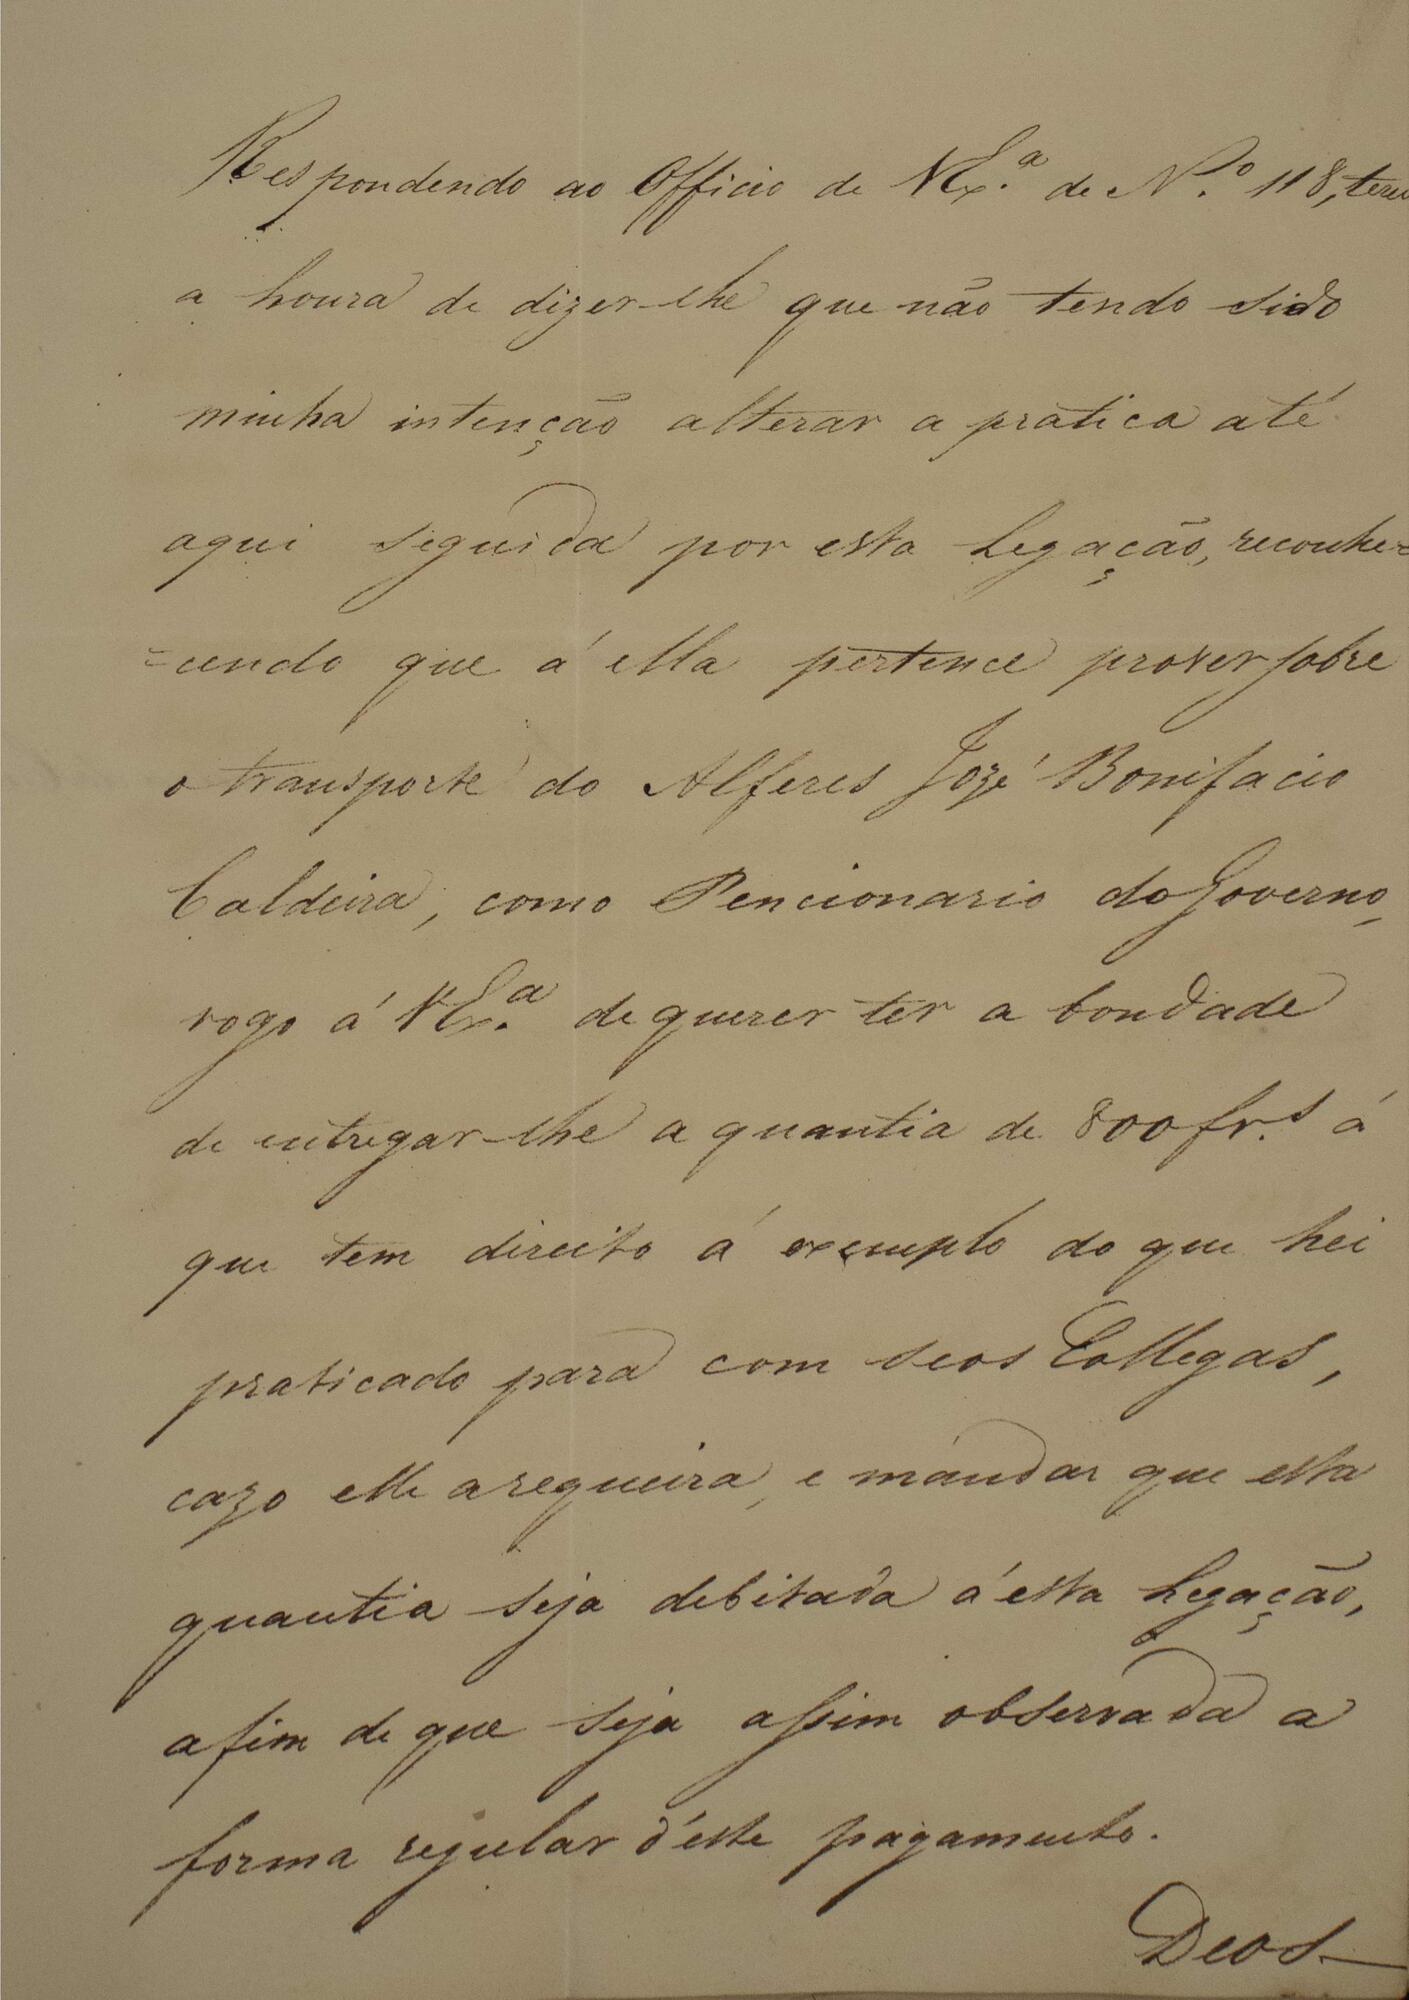 Respondendo ao Officio de VEx.ª de N.º 118, tenho
a honra de dizer-lhe que não tendo sido
minha intenção alterar a pratica até
aqui seguida por esta Legação, reconhe=
=cendo que á ella pertence prover sobre
o transporte do Alferes Jozé Bonifacio
Caldeira, como Pencionario do Governo,
rogo á VEx.ª de querer ter a bondade
de entregar-lhe a quantia de 800 fr.s á
que tem direito á exemplo do que hei
praticado para com seos Collegas,
cazo elle a requeira, e mandar que esta
quantia seja debitada á esta Legação,
afim de que seja assim observada a
forma regular d'éste pagamento.
Deos